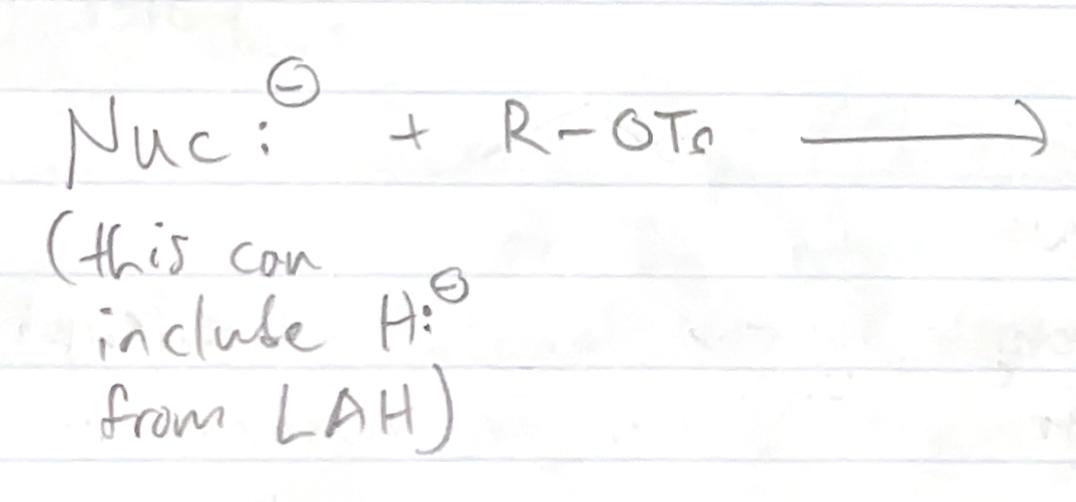 Nuc:⊖ + R-OTs ⟶
(this can
include H:⊖
from LAH)